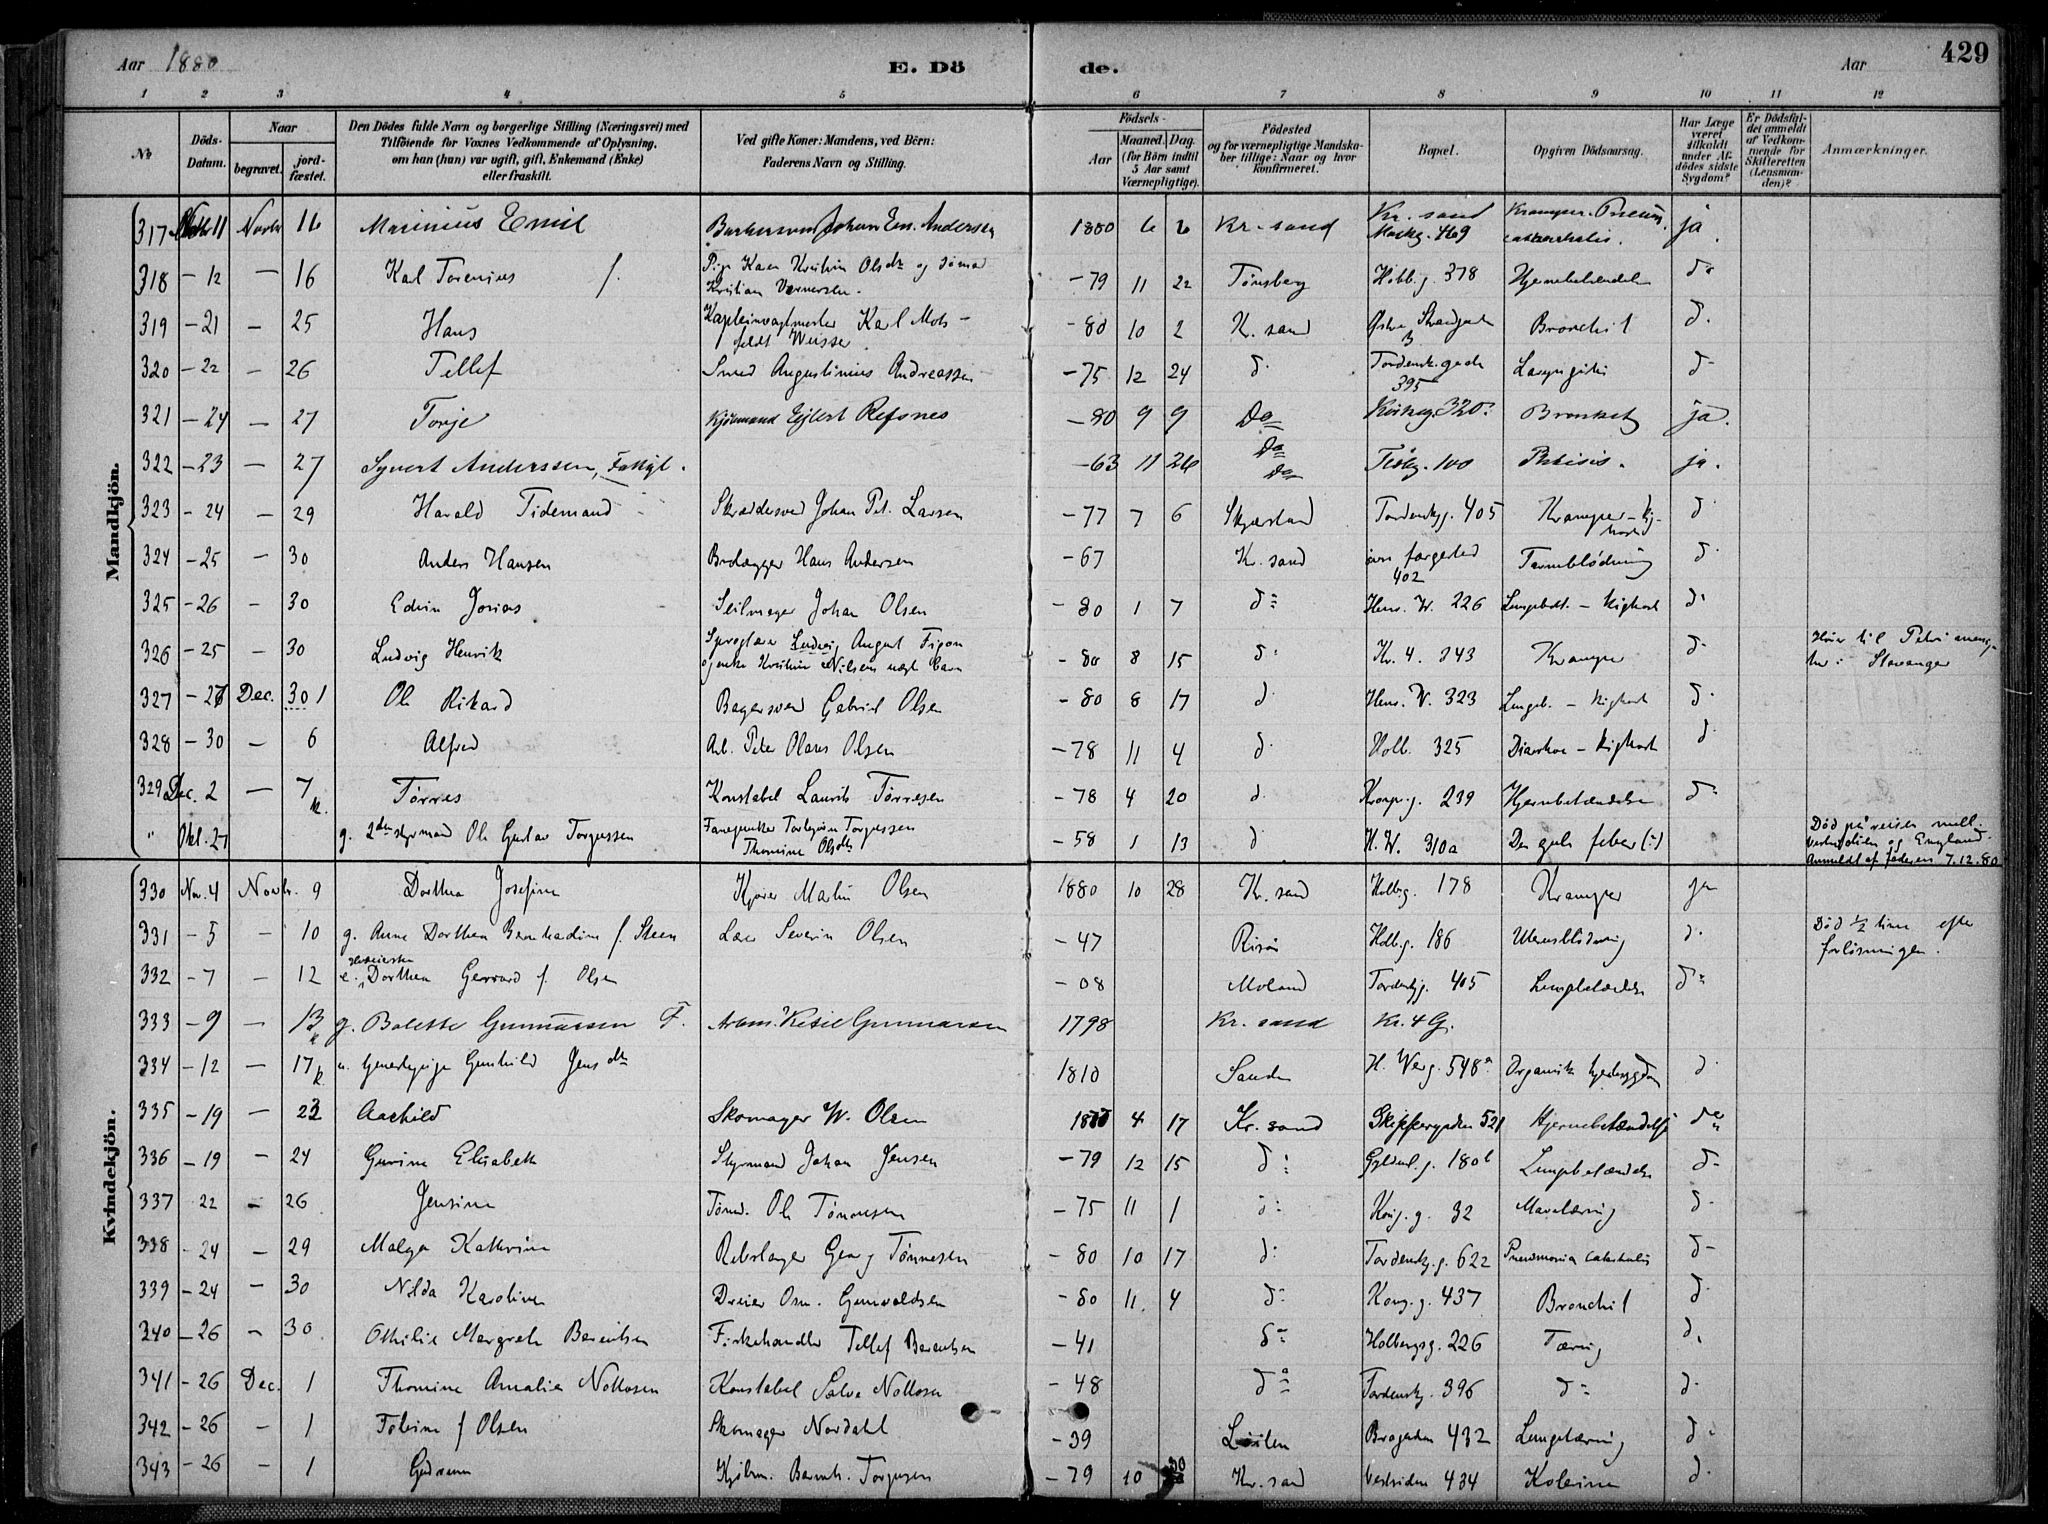 Aar 1880 E. Dö de. Aar 429
1 2 3 4 5 6 7 8 9 10 11 12
No
Döds-Datum.
Naar
begravet.
jord-fæstet.
Den Dödes fulde Navn og borgerlige Stilling (Næringsvei) med Tilföiende for Voxnes Vedkommende af Oplysning, om han (hun) var ugift, gift, Enkemand (Enke) eller fraskilt.
Ved gifte Koner: Mandens, ved Börn: Faderens Navn og Stilling.
Födsels-
Aar
Maaned. Dag.
(for Börn indtil 5 Aar samt Værnepligtige).
Födested og for værnepligtige Mandskaber tillige: Naar og hvor konfirmeret.
Bopæl.
Opgiven Dödsaarsag.
Har Læge været tilkaldt under Afdödes sidste Sygdom?
Er Dödsfaldet anmeldt af Vedkommende for Skifteretten (Lensmanden)?
Anmærkninger.
Mandkjön.
317 11 Novbr 16 Marinius Emil Johan Em. Andersen 1880 6 6 Kr. sand Kr. sand 469 ja.
318 - 12 — 16 Karl Torenius Pige Karen Kristin Olsdtr og Sømad Kristian Vernersen. - 79 11 22 Tønsberg Holb.g. 378 Hjernebetændelse do
319 - 21 — 25 Hans Karl Mots-feldt Weisser - 80 10 2 K. sand Østre Strandgade 3 Bronchit d.
320 - 22 — 26 Tellef Smed Augustinius Andreassen - 75 12 24 d. Tordensk. gade 395 Laryngitis d-
321 - 24 — 27 Torje Kjøbmand Ejlert Refsnes - 80 9 9 Do Kirkeg. 320. Bronket ja.
322 - 23 — 27 Syvert Anderssen, - 63 11 26 Do Do 100 Phtisis. ja.
323 - 24 — 29 Harald Tidemand Skræddersvend Johan Pet. Larsen - 77 7 6 Tordenskg. 405 Kramper - Kighoste d.
324 - 25 — 30 Anders Hansen Brolægger Hans Andersen - 67 Kr. sand 402 Tarmblödning d.
325 - 26 — 30 Edvin Josias Seilmager Johan Olsen - 80 1 7 d: Hens. W. 226 Lungebet. - Kighoste d.
326 - 25 — 30 Ludvig Henrik Sproglærer Ludvig August og enke Kristine Nilsens uægte Barn - 80 8 15 d: Kr. 4. 343 Kramper d- Hører til Petri menig- het i Stavanger
327 - 27 Dec. 30 1 Ole Rikard Bagersvend Gabriel Olsen - 80 8 17 d. Hens. V. 323 Lungeb. - Kighoste d.
328 - 30 — 6 Alfred Arb. Peter Olaus Olsen - 78 11 4 d. Holb. 325 Diarrhoe - Kighoste d.
329 Dec. 2 — 7 k. Tørres Konstabel Laurits Tørresen - 78 4 20 d. 239 Hjernebetændelse d-
" Okt. 27 g. 2den styrmand Ole Gustav Torgussen Torbjørn Torgussen Thomine Olsdtr - 58 1 13 d. H. W. 310a Den gule feber (:) Død på reisen mell. Vestindien og England. Anmeldt af faderen 7.12.80
Kvindekjön.
330 Nov. 4 Novbr. 9 Dorthea Josefine Martin Olsen 1880 10 28 Kr. sand Holbg. 178 Kramper ja
331 - 5 — 10 g. Anne Dorthea Bernhardine f. Steen Severin Olsen - 47 Risør Holb.g. 186 Uterusblödning d. Død ½ time efter forløsningen.
332 - 7 — 12 e. Dorthea Gerrard f. Olsen - 08 Moland Tordenskg. 405 Lungebetændelse d:
333 - 9 — 13 k g. Bolette Gunnarsen F. Kitil Gunnarsen 1798 Kr. sand Kr. 4 G.
334 - 12 — 17 k. u. Gunhild Jensdtr 1810 H. Werg. 548a Organisk hjertesygdom d.
335 - 19 — 23 Aashild Skomager W. Olsen 1880 4 17 Kr. sand Skippergaden 521 Hjernebetændelse do
336 - 19 — 24 Gurine Elisabeth Styrmand Johan Jensen - 79 12 15 d: Gyldenl.g. 180b Lungebetændelse d-
337 22 — 26 Jensine Tømd. Ole Tønnesen - 75 11 1 d: Kong.g. 32 Mavetæring d-
338 - 24 — 29 Malga Kathrine Rebslager Georg Tønnesen - 80 10 17 d: Tordensk.g. 622 Pneumonia catarrhalis d-
339 - 24 — 30 Nilda Karoline Dreier Osm. Gunvaldsen - 80 11. 4 d: Kong.g. 437 Bronchit d.
340 - 26 — 30 Othilie Margrete Berentsen Fiskehandler Tellef Berentsen - 41 d- Holbergsg. 226 Tæring d.
341 - 26 Dec. 1 Thomine Amalie Nottosen Konstabel Salve Nottosen - 48 do Tordenskg. 396 d: d.
342 - 26 — 1 f Olsen Skomager Nordahl - 39 Brogaden 432 Lungetæring d.
343 - 26 — 1 Gudrun Kjøbm. Bernh. Torgusen - 79 10 30 Kr. sand Vestsiden 434 Kolerine d.